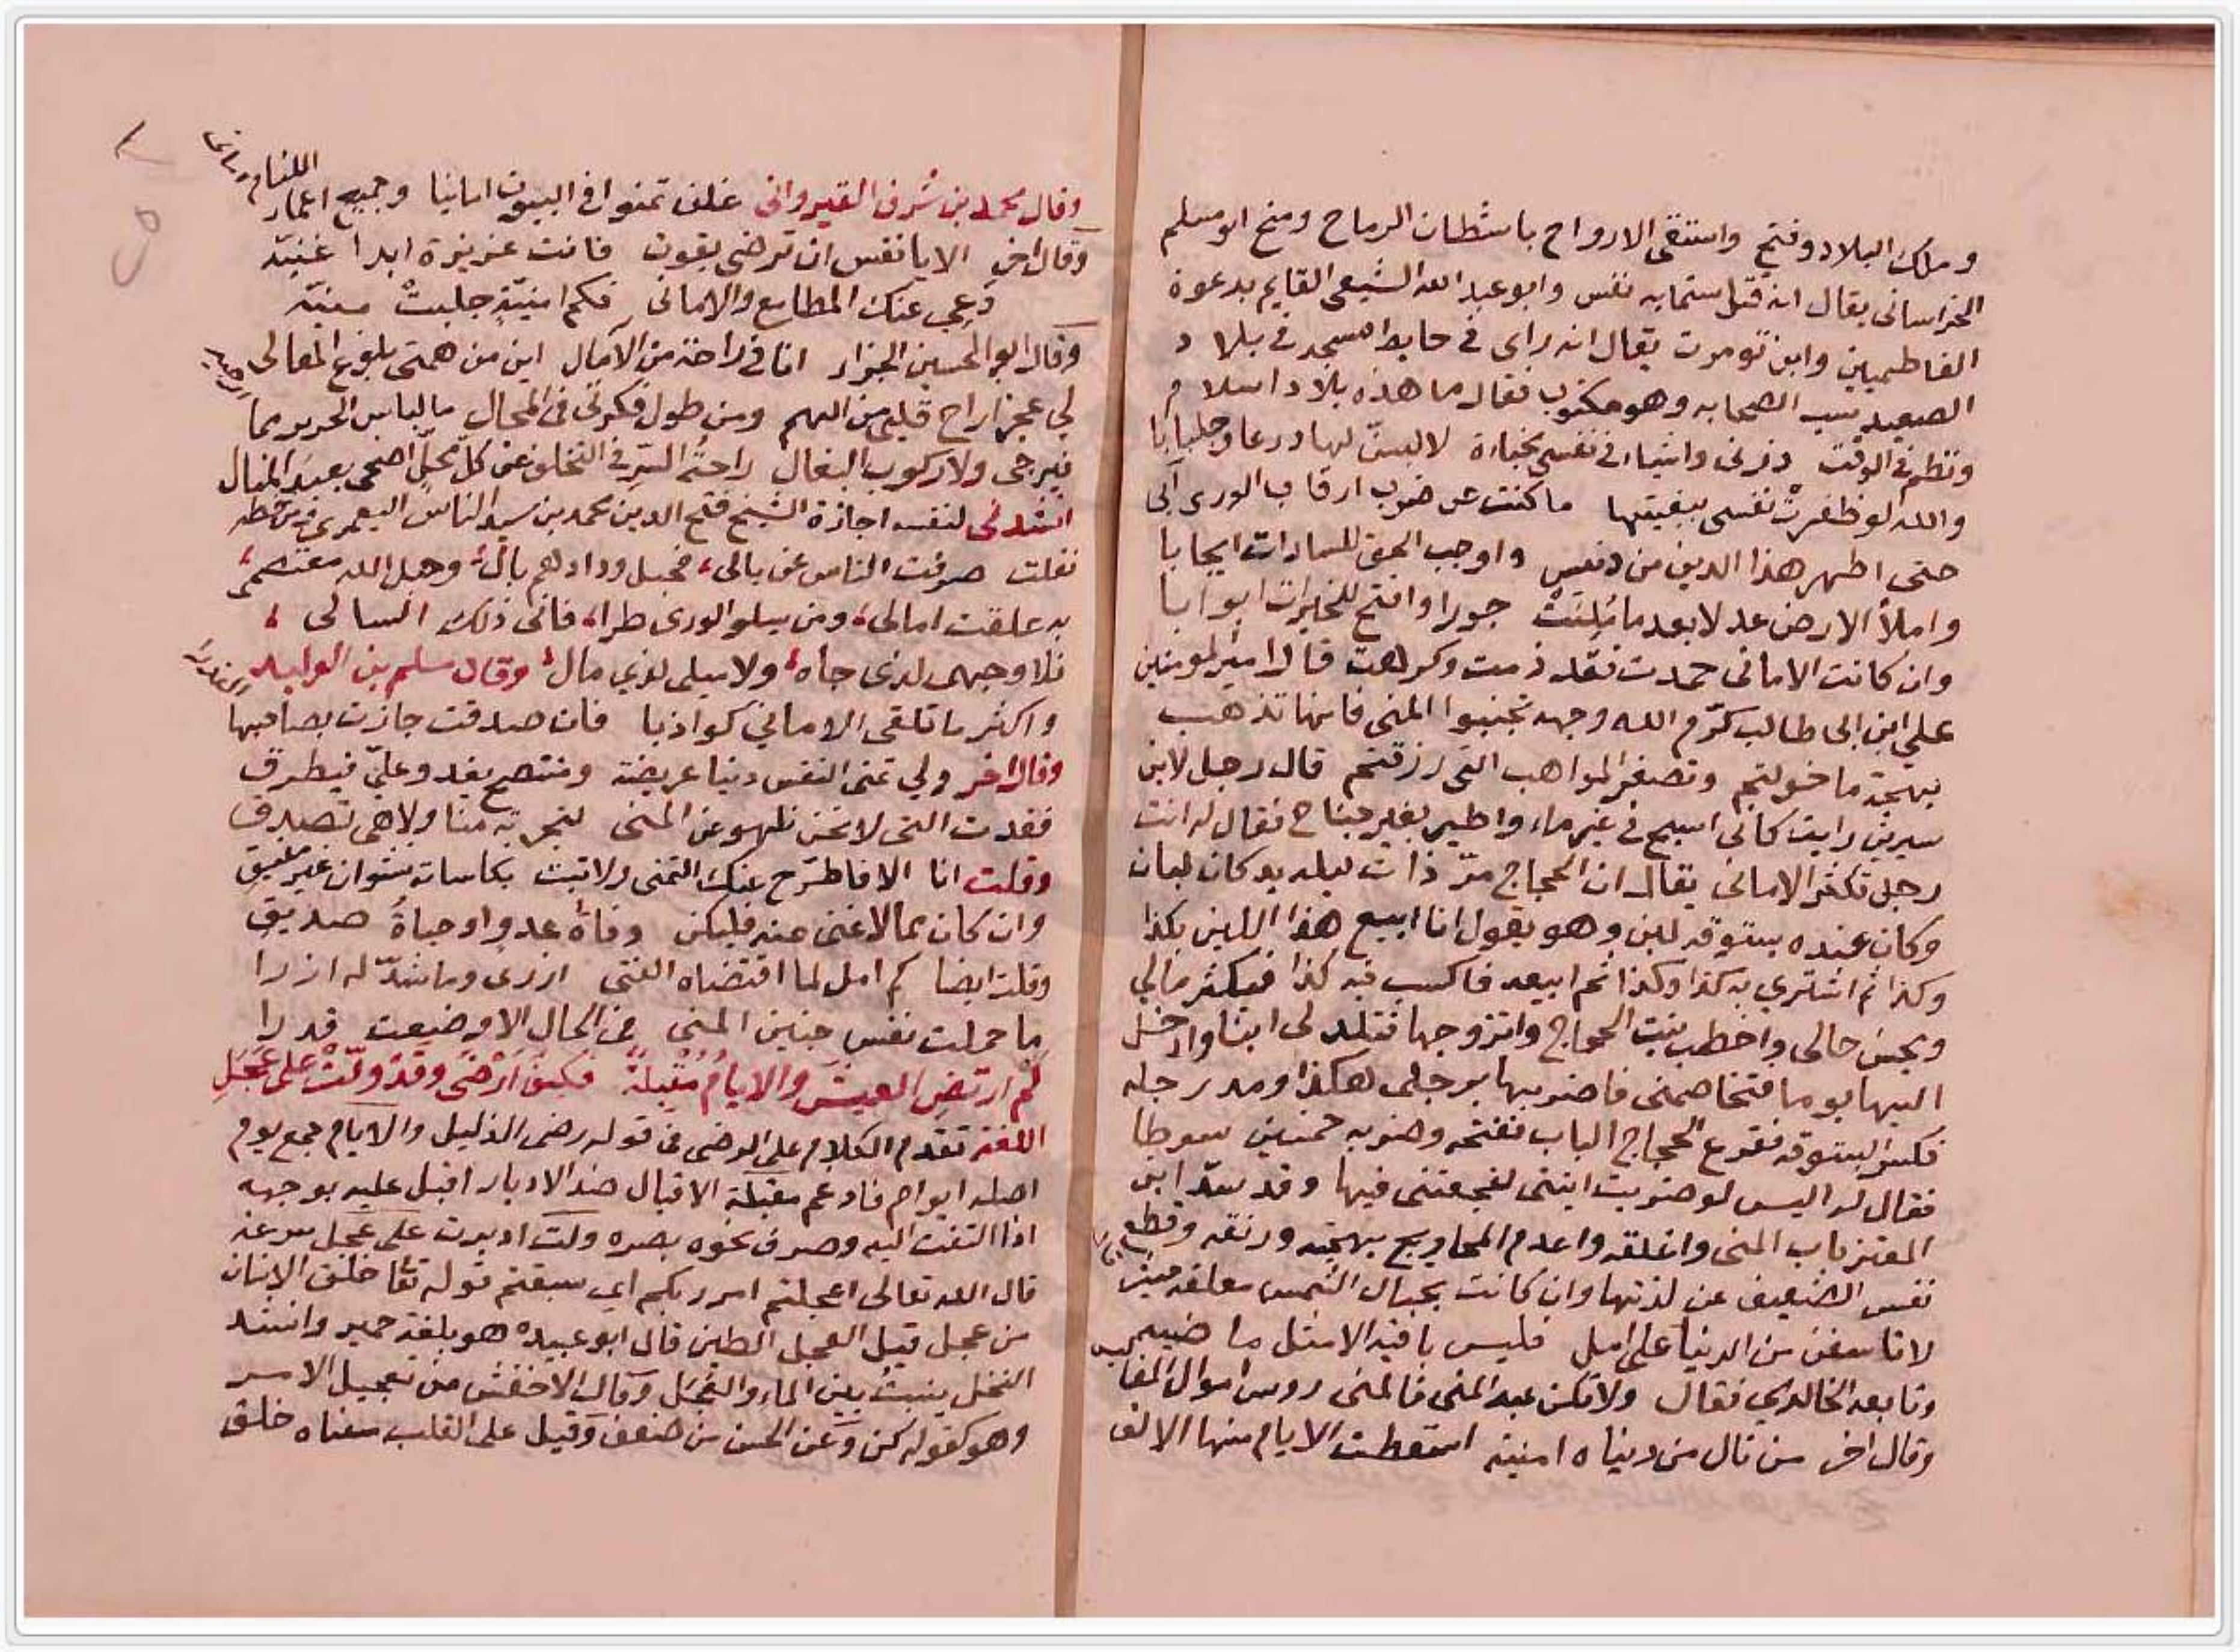 وملك البلاد وفتح واستقى الارواح باشطان الرماح ومنح ابو مسلم
الخراساني يقال انه قتل ستمايه نفس وابو عبد الله الشيعي القايم بدعوة
الفاطميين وابن تومرت يقال انه راى في حايط المسجد في بلاد
الصعيد سب الصحابه وهو مكتوب فقال ما هذه بلاد اسلام
ونظم في الوقت ذرني واشياء في نفسي مخباءة لالبسن لها درعا وجلبابا
والله لو ظفرت نفسي ببغيتها ما كنت عن ضرب ارقاب الورى آبى
حتى اطهر هذا الدين من دنس واوجب الحق للسادات ايجابا
واملأ الارض عدلا بعد ما ملئت جورا وافتح للخيرات ابوابا
وان كانت الاماني حمدت فقد ذمت وكرهت قال امير المومنين
علي ابن ابى طالب كرّم الله وجهه تجنبوا المنى فانها تذهب
بهجة ما خولتم وتصغر المواهب التى رزقتم قال رجل لابن
سيرين رايت كاني اسبح في غير ماء واطير بغير جناح فقال له انت
رجل تكثر الاماني يقال ان الحجاج مرّ ذات ليله بدكان لبان
وكان عنده بستوقه لبن وهو يقول انا ابيع هذا اللبن بكذا
وكذا ثم اشتري به كذا وكذا ثم ابيعه فاكسب فيه كذا فيكثر مالي
ويحسن حالى واخطب بنت الحجاج واتزوجها فتلد لى ابنا وادخل
اليها يوما فتخاصمنى فاضربها برجلى هكذا ومد رجله
فكسر البستوقه فقرع الحجاج الباب ففتحه وضربه خمسين سوطا
فقال له اليس لو ضربت ابنتى لفجعتنى فيها وقد سدّ ابن
المعتز باب المنى واغلقه واعدم المحاويج بهجته ورنقه وقطع
نفس الضعيف عن لذتها وان كانت بحبال الشمس معلقه حيث
لا تاسفن من الدنيا على امل فليس باقيه الا مثل ماضيه
وتابعه الخالدي فقال ولا تكن عبد المنى فالمنى روس اموال المفا
وقال اخر من نال من دنياه امنية اسقطت الايام منها الالف
وقال محمد بن شرف القيرواني غلف تمنوا في البيوت امانيا وجميع اعمار اللئام امانى
وقال اخر الا يا نفس ان ترضي بقوت فانت عزيزة ابدا غنيّه
دعي عنك المطامع والاماني فكم امنيّةٍ جلبتْ منيّه
وقال ابو الحسين الجزار انا في راحة من الآمال اين من همتى بلوغ المعالى
لي عجز اراح قلبي من الهم ومن طول فكرتى في المحال ما لباس الحرير مما
فيرجى ولا ركوب البغال راحةُ السرّ في التخلف عن كل محلّ اضحى بعيد المنال
انشدنى لنفسه اجازة الشيخ فتح الدين محمد بن سيد الناس اليعمري ومن خطه
نقلت صرفت الناس عن بالى، فحبل ودادهم بال، وحبل الله معتصمى،
به علقت امالى، ومن يسلو الورى طرا، فانى ذلك السالى،
فلا وجهى لذى جاه، ولا ميلى لذي مال، وقال مسلم بن الوليد
واكثر ما تلقى الاماني كواذبا فان صدقت جازت بصاحبها
وقال اخر ولي تمنى النفس دنيا عريضة ومنتصح يغدو عليّ فيطرق
فقدت التى لا نحن نلهو عن المنى لتجربة منا ولا هى تصدق
وقلت انا الا فاطّرح عنك التمنى ولا تبت بكاسات نشوان غير مفيق
وان كان مما لا غنى عنه فليكن وفاة عدو او حياة صديق
وقلت ايضا كم امل لما اقتضاه الفتى ازرى وما شدّ له ازرا
ما حملت نفس جنين المنى في الحال الا وضعت قدرا
لَمْ ارتضِ العيشَ والايامُ مُقْبلةٌ فكيفَ أرْضَى وقَدْ ولّتْ على عَجَلِ
اللغة تقدم الكلام على الرضى في قوله رضى الذليل والايام جمع يوم
اصله ايوام فادغم مقبلة الاقبال ضد الادبار اقبل عليه بوجهه
اذا التفت اليه وصرف نحوه بصره ولت ادبرت على عجل سرعه
قال الله تعالى اعجلتم امر ربكم اي سبقتم قوله تعا خلق الانسان
من عجل قيل العجل الطين قال ابو عبيده هو بلغة حمير وانشد
النخل ينبتُ بين الماء والعجل وقال الاخفش من تعجيل الامر
وهو كقوله كن وعن الحسن من ضعف وقيل على القلب معناه خلق